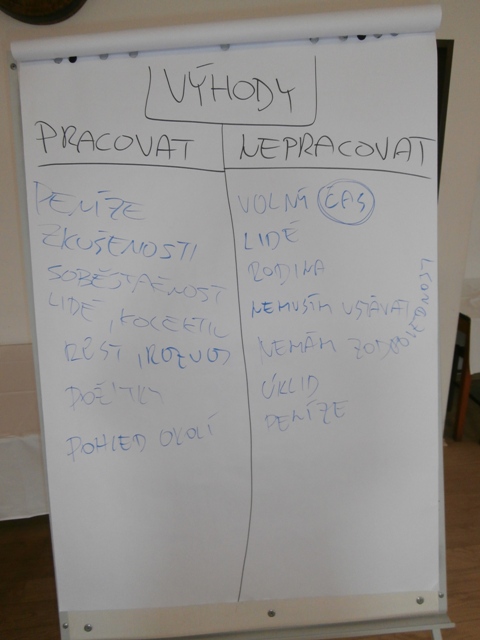 VÝHODY
PRACOVAT
PENÍZE
ZKUŠENOSTI
SOBĚSTAČNOST
LIDÉ, KOLEKTIV
RŮST, ROZVOJ
POŽITKY
POHLED OKOLÍ
NEPRACOVAT
VOLNÝ ČAS
LIDÉ
RODINA
NEMUSÍM VSTÁVAT
NEMÁM ZODPOVĚDNOST
ÚKLID
PENÍZE